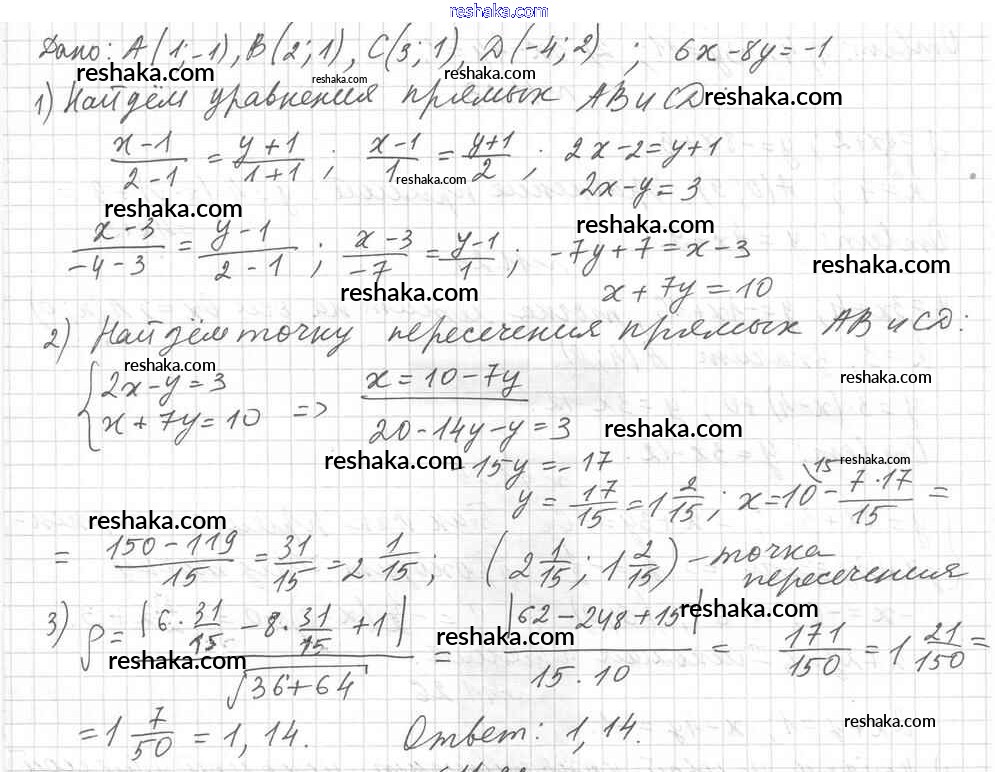 reshaka.com
Дано: A(1;-1), B(2;1), C(3;1), D(-4;2) ; 6x-8y=-1
reshaka.com reshaka.com reshaka.com reshaka.com
1) Найдём уравнения прямых AB и CD: reshaka.com
(x-1)/(2-1) = (y+1)/(1+1) ; (x-1)/1 = (y+1)/2 ; 2x-2=y+1
reshaka.com
2x-y=3
reshaka.com reshaka.com
(x-3)/(-4-3) = (y-1)/(2-1) ; (x-3)/(-7) = (y-1)/1 ; -7y+7=x-3
reshaka.com reshaka.com
x+7y=10
2) Найдём точку пересечения прямых AB и CD:
reshaka.com reshaka.com
{2x-y=3
x+7y=10 => x=10-7y
20-14y-y=3 reshaka.com
reshaka.com reshaka.com
-15y=-17
y=17/15=1 2/15; x=10^15-(7·17)/15=
reshaka.com
=(150-119)/15=31/15=2 1/15; (2 1/15; 1 2/15) - точка
пересечения
reshaka.com
3) ρ=|6·31/15-8·31/15+1|/√(36+64) = |62-248+15|/(15·10) = 171/150=1 21/150=
reshaka.com reshaka.com
=1 7/50=1,14. Ответ: 1,14.
reshaka.com